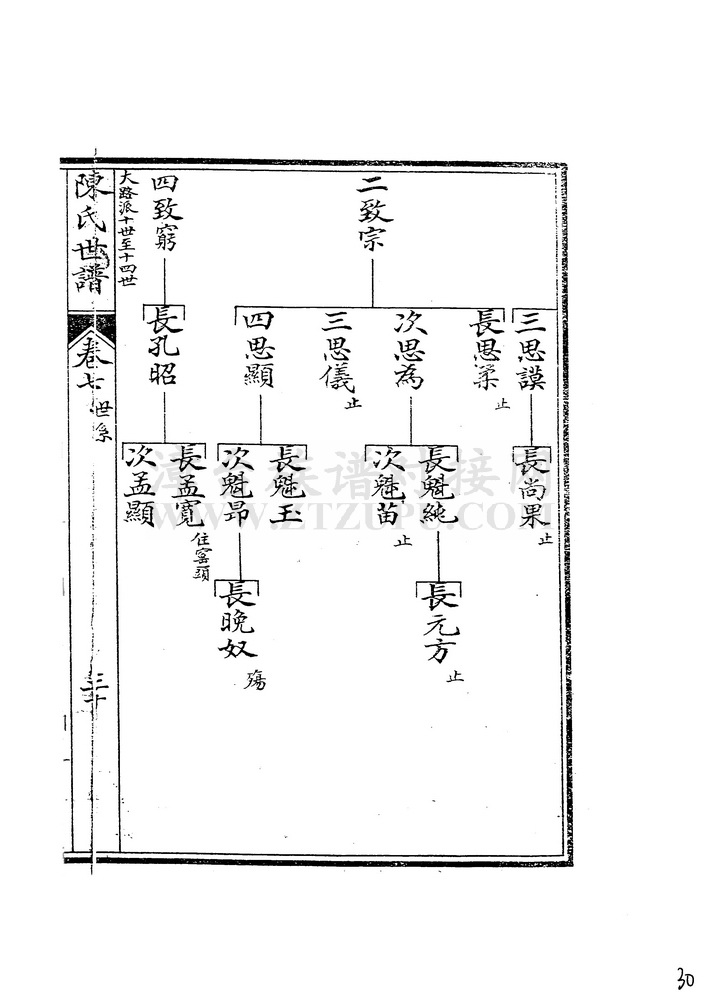 二致宗
三思謨
長思柔
止
次思為
三思儀
止
四思顯
長尚果
止
長魁純
次魁苗
止
長魁玉
次魁昂
長元方
止
長晚奴
殤
四致窮
長孔昭
長孟寬
住窰頭
次孟顯
大路派十世至十四世
陳氏世譜
卷七
世系
三十
WWW.ZTZUPU.COM
30